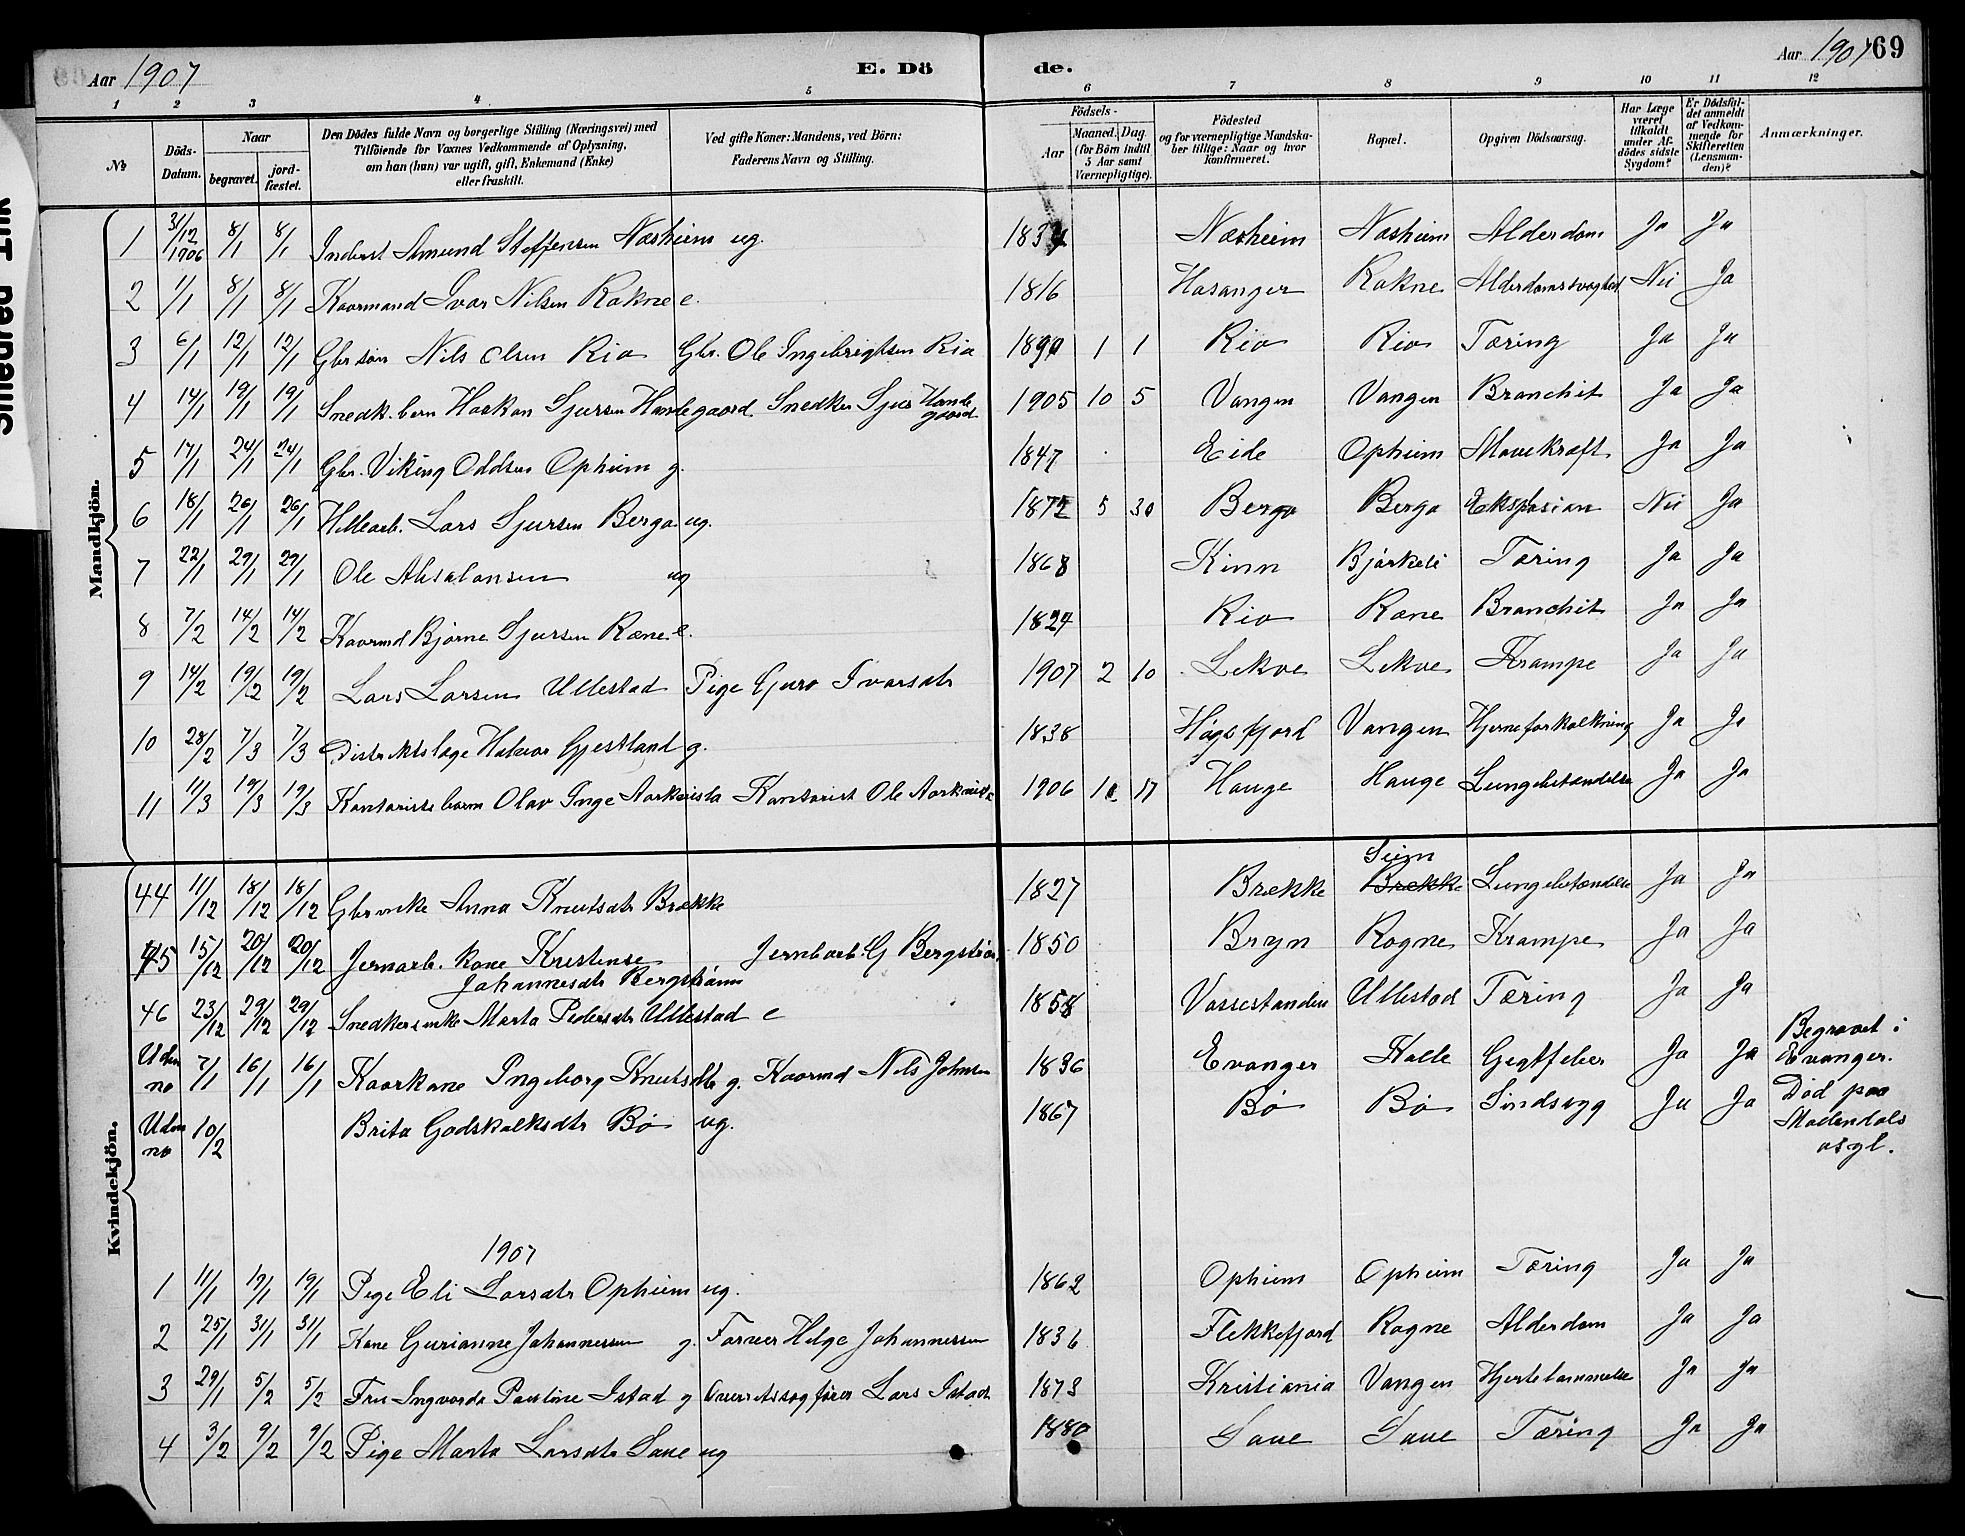 Aar 1907 E. Dö de. Aar 1907 69
1 2 3 4 5 6 7 8 9 10 11 12
№ Döds-Datum. Naar begravet. jordfæstet. Den Dödes fulde Navn og borgerlige Stilling (Næringsvei) med Tilföiende for Voxnes Vedkommende af Oplysning, om han (hun) var ugift, gift, Enkemand (Enke) eller fraskilt. Ved gifte Koner: Mandens, ved Börn: Faderens Navn og Stilling. Födsels- Aar Maaned. Dag. (for Börn indtil 5 Aar samt Værnepligtige). Födested og for værnepligtige Mandskaber tillige: Naar og hvor konfirmeret. Bopæl. Opgiven Dödsaarsag. Har Læge været tilkaldt under Afdödes sidste Sygdom? Er Dödsfaldet anmeldt af Vedkommende for Skifteretten (Lensmanden)? Anmærkninger.
Mandkjön.
1 31/12 1906 8/1 8/1 Inderst Amund Steffensen Næsheim ug. 1834 Næsheim Næsheim Alderdom Ja Ja
2 1/1 8/1 8/1 Kaarmand Ivar Nilsen Rokne e. 1816 Hosanger Rokne Alderdomssvaghed Nei Ja
3 6/1 12/1 12/1 Gbr søn Nils Olsen Rio Gbr. Ole Ingebrigtsen Rio 1890 1 1 Rio Rio Tæring Ja Ja
4 14/1 19/1 19/1 Snedk. barn Haakon Sjursen Handegaard Snedker Sjur Handegaard 1905 10 5 Vangen Vangen Bronchit Ja Ja
5 17/1 24/1 24/1 Gbr. Viking Oddsen Opheim g. 1847 Eide Opheim Mavekræft Ja Ja
6 18/1 26/1 26/1 Hellearb. Lars Sjursen Berga ug. 1872 5 30 Berga Berga Eksplosion Nei Ja
7 22/1 29/1 29/1 Ole Absalonsen ug 1868 Kinn Bjørkeli Tæring Ja Ja
8 7/2 14/2 14/2 Kaarmd Bjørne Sjursen Rene e. 1824 Rio Rene Bronchit Ja Ja
9 14/2 19/2 19/2 Lars Larsen Ullestad Pige Guro Ivarsdtr 1907 2 10 Lekve Lekve Krampe Ja Ja
10 28/2 7/3 7/3 Distriktslæge Halvor Gjestland g. 1838 Høgsfjord Vangen Hjerneforkalkning Ja Ja
11 11/3 19/3 19/3 Kontorists barn Olav Inge Aarkvisla Kontorist Ole Aarkvisla 1906 10 17 Hauge Hauge Lungebetændelse Ja Ja
Kvindekjön.
44 11/12 18/12 18/12 Gbr enke Anna Knutsdtr Brække 1827 Brække Brække Seim Lungebetændelse Ja Ja
45 15/12 20/12 20/12 Jernarb. kone Kristense Johannesdtr Bergstrøm Jernbarb. G Bergstrøm 1850 Bryn Rogne Krampe Ja Ja
46 23/12 29/12 29/12 Snedkerenke Marta Pedersdtr Ullestad e 1858 Vossestanden Ullestad Tæring Ja Ja
Uden no 7/1 16/1 16/1 Kaarkone Ingeborg Knutsdtr g. Kaarmd Nils Johnsen 1836 Evanger Kolle Gigtfeber Ja Ja Begravet i Evanger.
Uden no 10/2 Brita Godskalksdtr Bø ug. 1867 Bø Bø Sindssyg Ja Ja Død paa Modendals asyl.
1907
1 11/1 19/1 19/1 Pige Eli Larsdtr Opheim ug. 1862 Opheim Opheim Tæring Ja Ja
2 25/1 31/1 31/1 Kone Gurianne Johannessen g. Farver Helge Johannessen 1836 Flekkefjord Rogne Alderdom Ja Ja
3 29/1 5/2 5/2 Fru Ingvarda Pauline Istad g Overretssagfører Lars Istad 1873 Kristiania Vangen Hjertelammelse Ja Ja
4 3/2 9/2 9/2 Pige Marta Larsdtr Saue ug 1880 Saue Saue Tæring Ja Ja